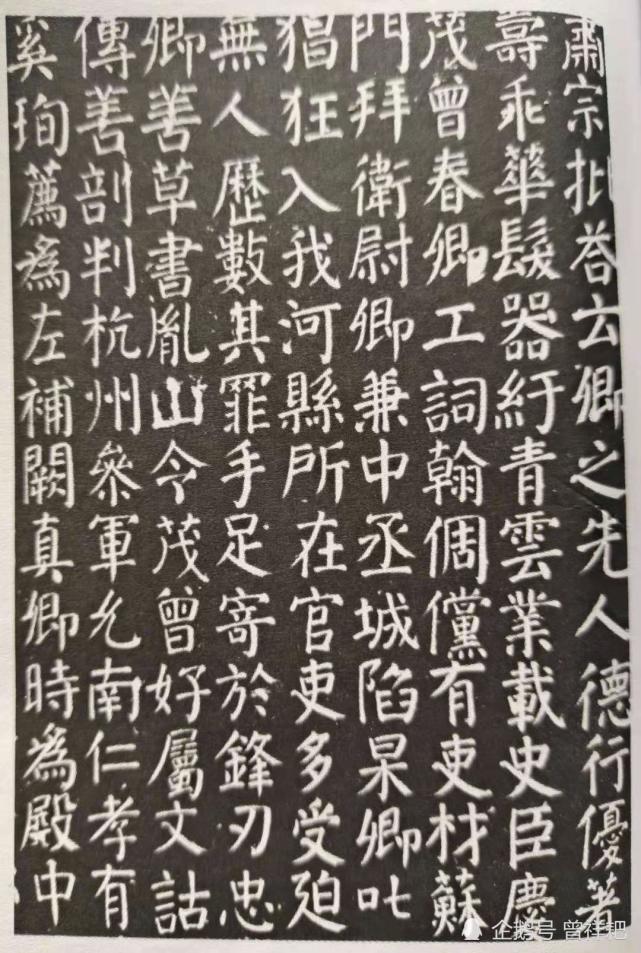 肅宗批荅云卿之先人德行優著
壽乖華髮器紆青雲業載史臣慶
茂曾春卿工詞翰倜儻有吏材蘇
門拜衛尉卿兼中丞城陷杲卿叱
猖狂入我河縣所在官吏多受廹
無人歷數其罪手足寄於鋒刃忠
卿善草書胤山令茂曾好屬文詁
傳善剖判杭州叅軍允南仁孝有
奚珣薦為左補闕真卿時為殿中
企鹅号 曾祥耙